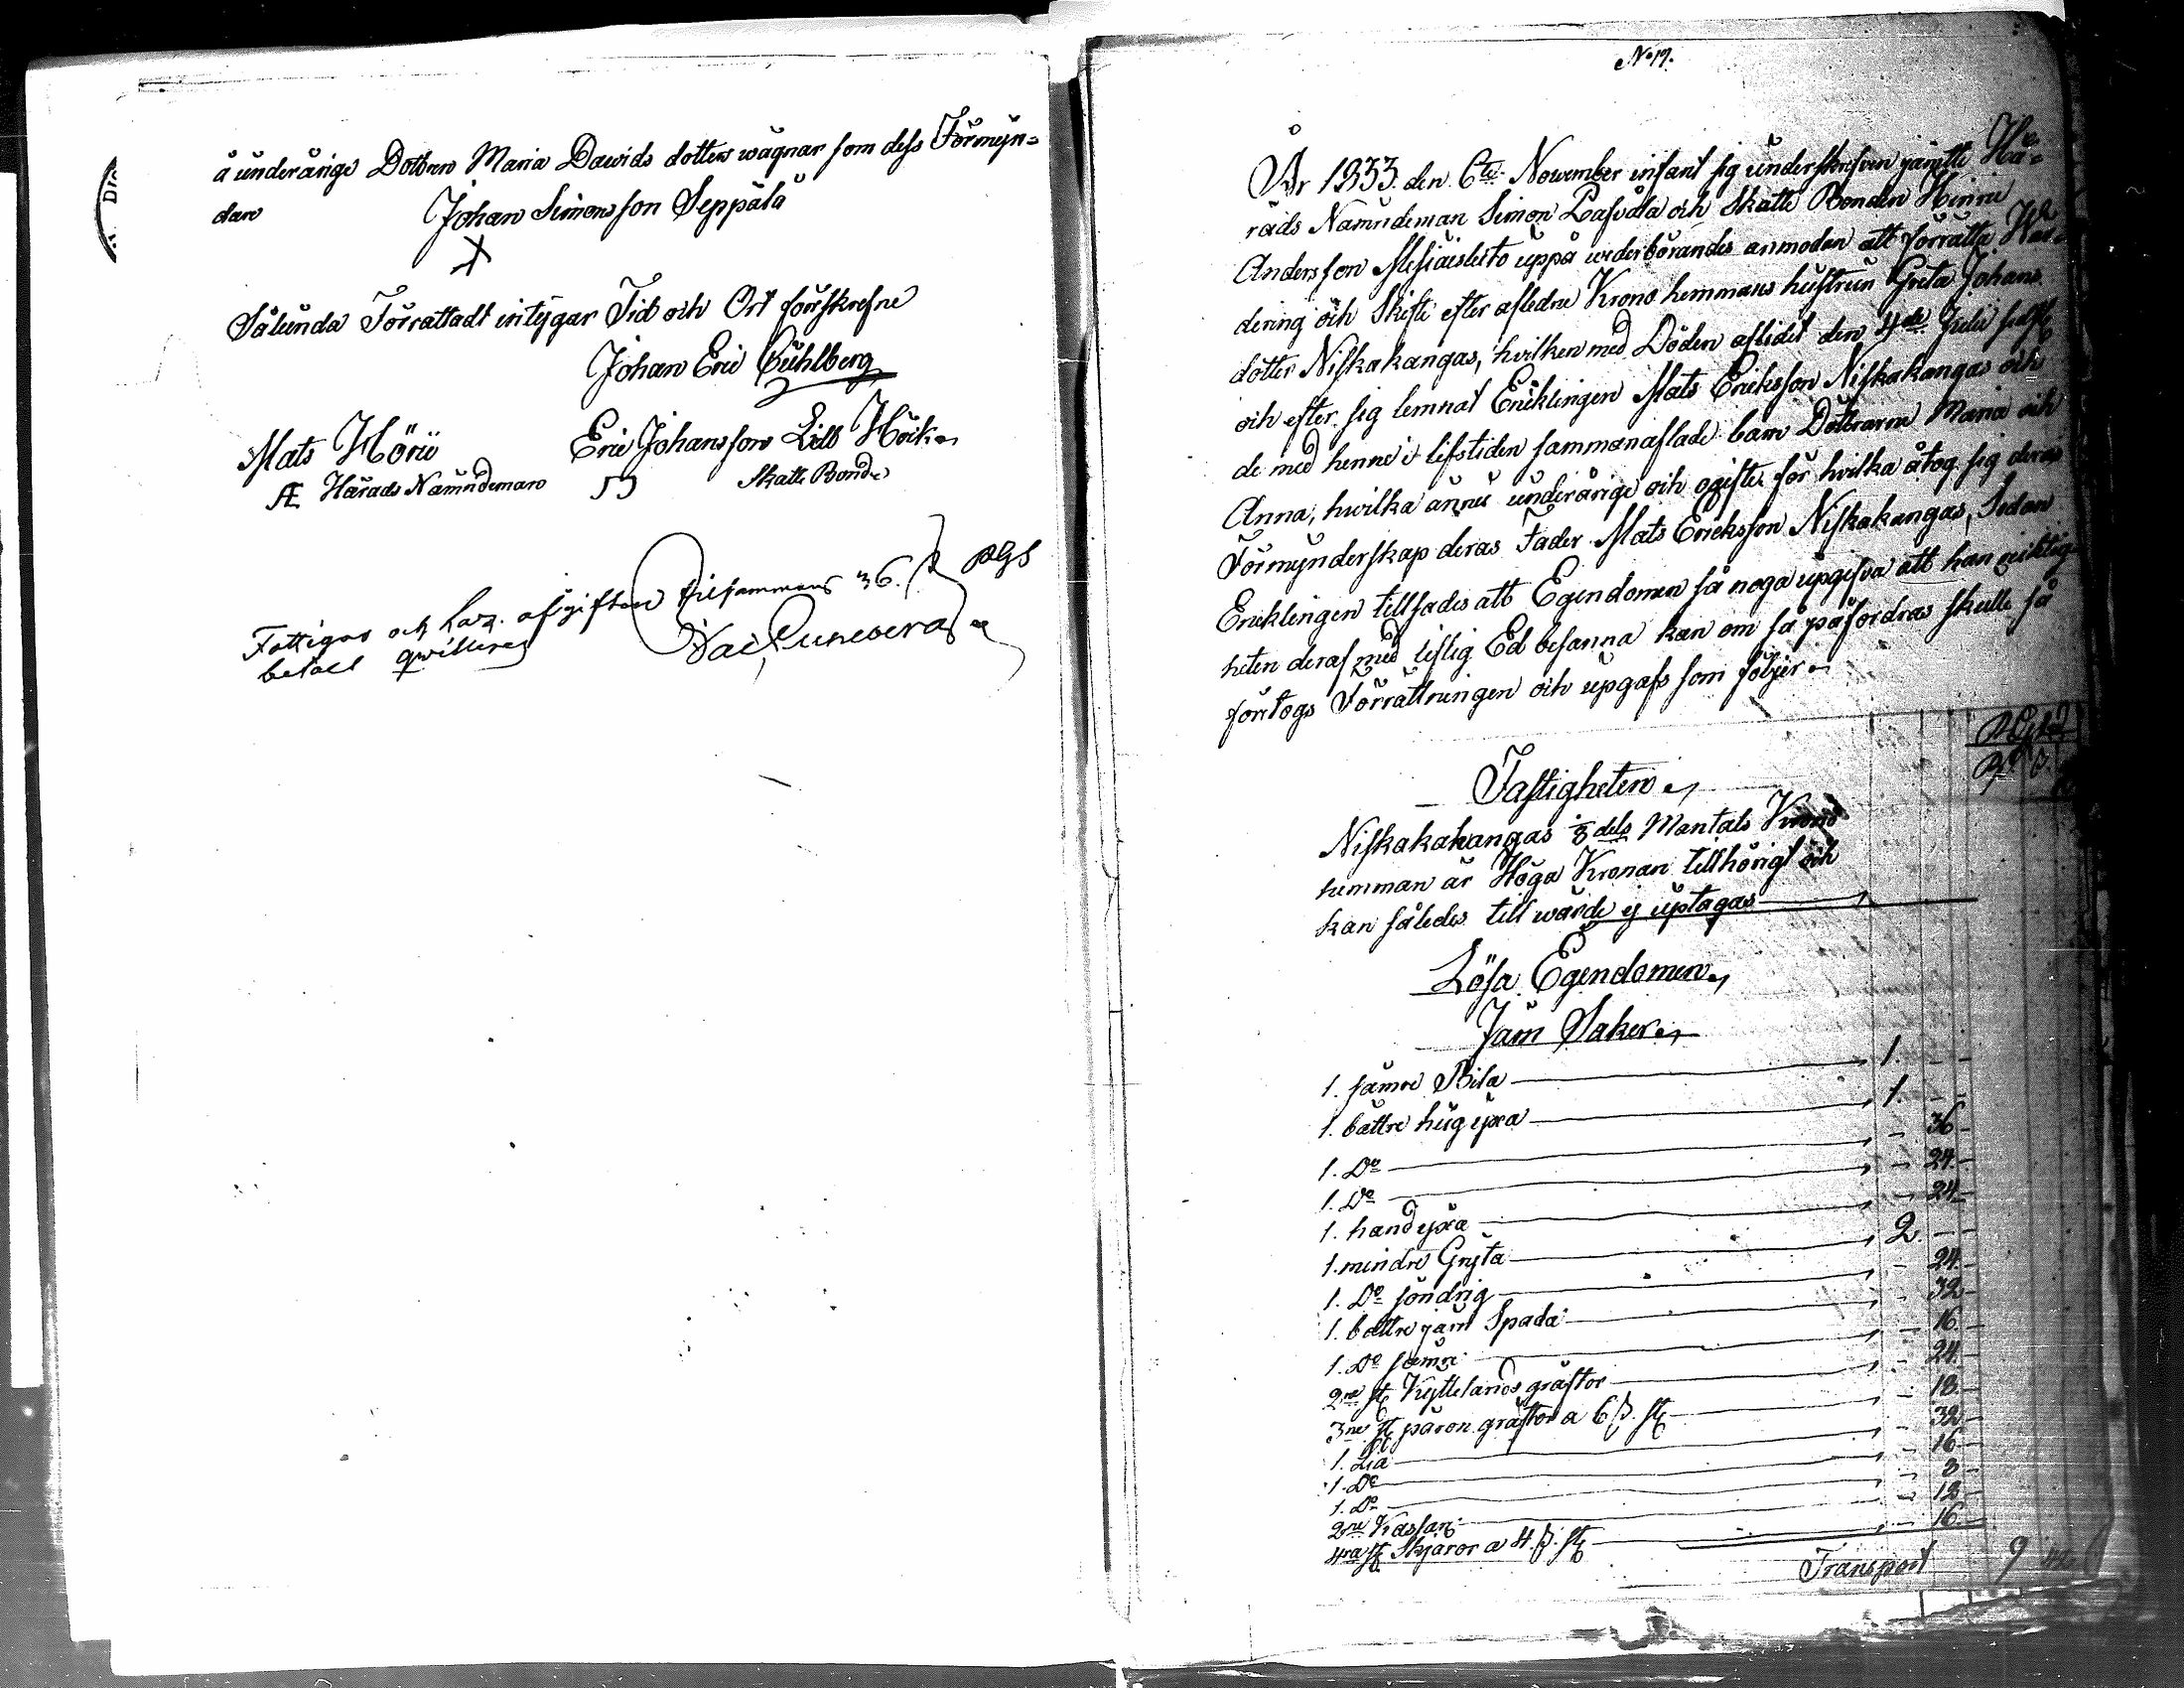 å underårige Dottren Maria Dawids dotters wägnar som dess Förmyn=
dare
Johan Simonsson Seppälä
Sålunda Förrättadt intygar Tid och Ort förskrefne
Johan Eric Cuhlberg
Mats Hörü Eric Johansson Lill Höik
Härads Nämndeman Skatte Bonde
Fattigas och Laz. afgiften tillsammans 36. RGS
betalt qwitteras
No 17.
År 1833. den 6te November infant sig underskrifven jämte Hä=
rads Nämndeman Simon Pasoåla och Skatte Bonden Hinric
Andersson uppå wederbörandes anmodan att förrätta Wär=
dering och Skifte efter aflidne Krono hemmans hustrun Greta Johans
dotter Niskakangas, hvilken med Döden aflidit den 4de Julii
och efter sig lemnat Encklingen Mats Ericksson Niskakangas och
de med henne i lifstiden sammanaflade barn Döttrarne Maria och
Anna, hwilka ännu underårige och ogifte, för hvilka åtog sig deras
Förmynderskap deras Fader Mats Ericksson Niskakangas, Sedan
Encklingen tillsades att Egendomen så noga upgifva att han riktig=
heten deraf med liflig Ed besanna kan om så påfordras skulle så
företogs Förrättningen och upgafs som följer
Fastigheten
Niskakakangas 1/8 dels Mantals Krono
hemman är Höga Kronan tillhörigt och
kan således till wärde ej uptagas
Lösa Egendomen
Järn Saker
1. sämre Bila 1. - -
1. bättre hug yxa 1. - -
1. Do - 36 -
1. Do - 24. -
1. hand yxa - 24 -
1. mindre Gryta 2. - -
1. Do söndrig - 24. -
1. bättre järn Spada - 32 -
1. Do sämre - 16. -
2ne st Kyttelands gräftor - 24. -
3ne st päron gräftor a 6 ß. st - 18. -
1. Lia - 32 -
1. Do - 16 -
1. Do - 8 -
2ne Kassar - 12 -
4ra st Skjäror a 4. ß. st - 16. -
Transport 9